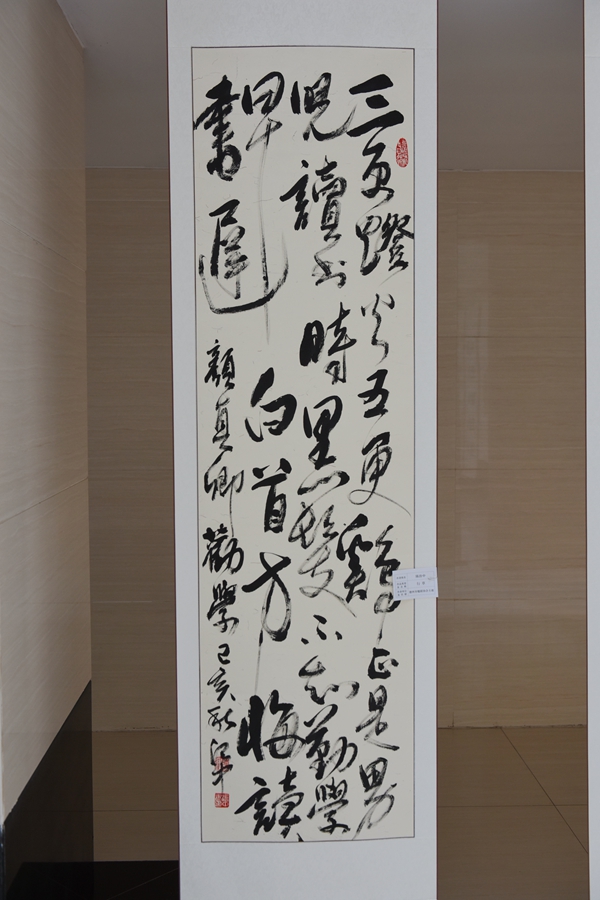 三更燈火五更雞正是男
兒讀書時黑髮不知勤學
早白首方悔讀
書遲
顏真卿勸學己亥秋